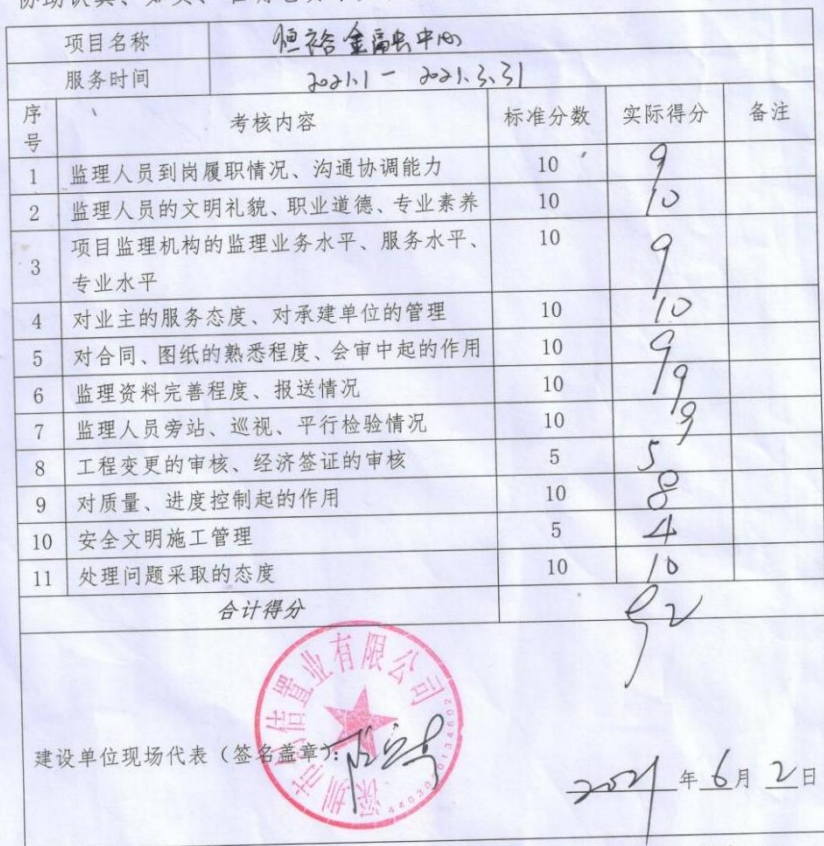 项目名称 恒裕金融中心
服务时间 2021.1 - 2021.3.31
序号 考核内容 标准分数 实际得分 备注
1 监理人员到岗履职情况、沟通协调能力 10 9
2 监理人员的文明礼貌、职业道德、专业素养 10 10
3 项目监理机构的监理业务水平、服务水平、 10 9
专业水平
4 对业主的服务态度、对承建单位的管理 10 10
5 对合同、图纸的熟悉程度、会审中起的作用 10 9
6 监理资料完善程度、报送情况 10 9
7 监理人员旁站、巡视、平行检验情况 10 9
8 工程变更的审核、经济签证的审核 5 5
9 对质量、进度控制起的作用 10 8
10 安全文明施工管理 5 4
11 处理问题采取的态度 10 10
合计得分 92
深圳市 信置业有限公司
建设单位现场代表（签名盖章）：
2021年6月2日